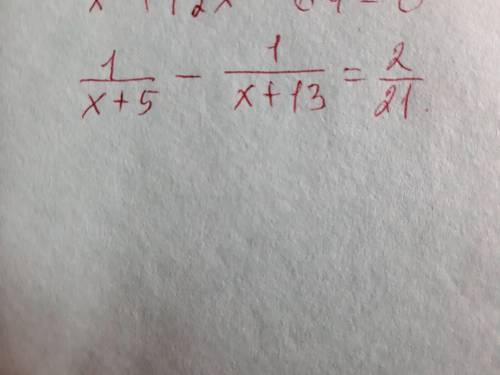 1/(x+5) - 1/(x+13) = 2/21.